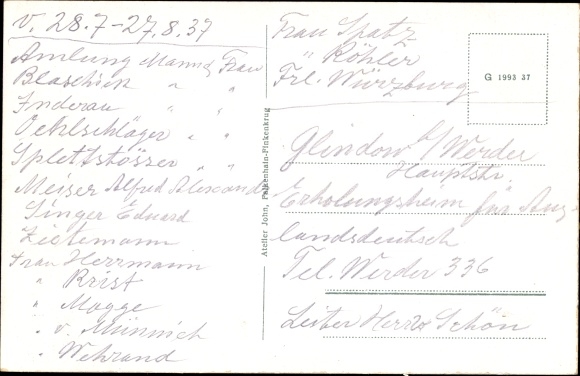 v. 28.7-27.8.37
Amlung Mann & Frau
Blaschick " "
Inderau " "
Oehlschläger " "
Splettstösser " "
Meiser Alfred Alexand
Singer Eduard
Zietemann
Frau Herrmann
" Krist
" Magge
" v. Münnich
" Wehrand
Atelier John, Falkenhain-Finkenkrug
Frau Spatz
" Köhler
Frl. Würzburg
G 1993 37
Glindow b/Werder
Hauptstr.
Erholungsheim für Aus-
landsdeutsch
Tel. Werder 336
Leiter Herr Schön